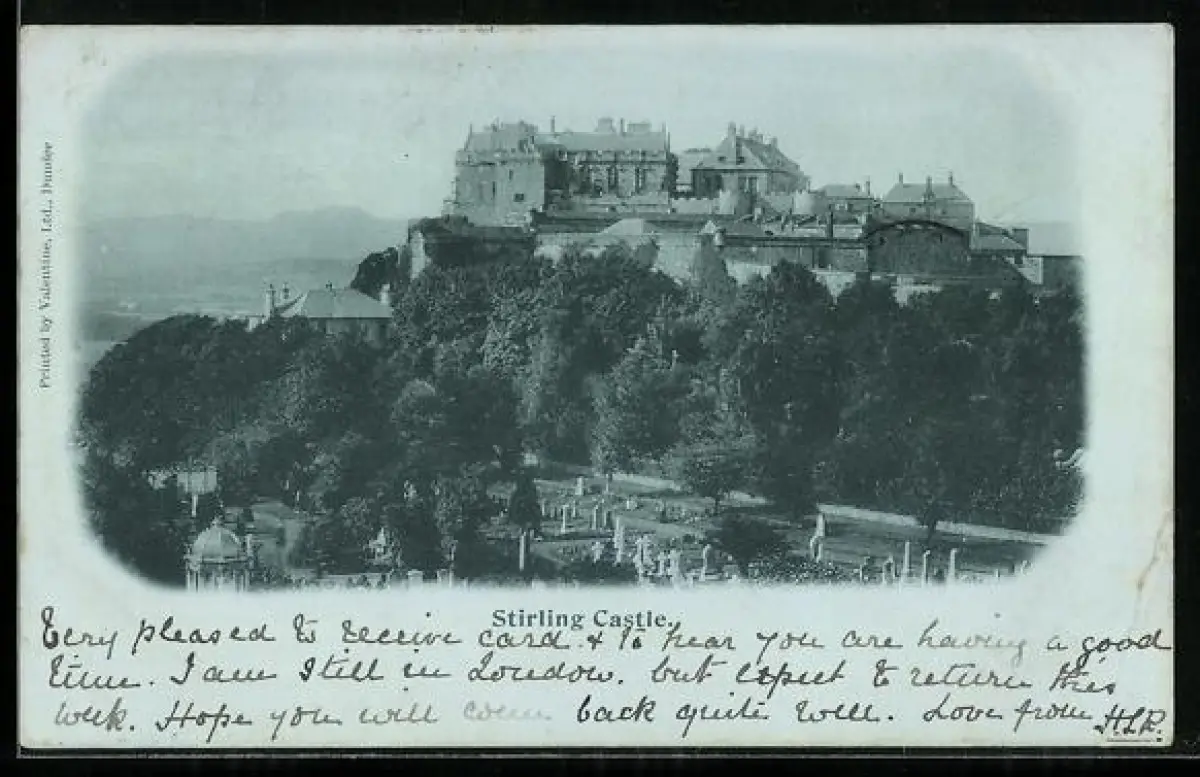 Printed by Valentine, Ltd., Dundee
Stirling Castle.
Very pleased to receive card. & to hear you are having a good
time. I am still in London. but expect to return this
week. Hope you will come back quite well. Love from H.L.R.